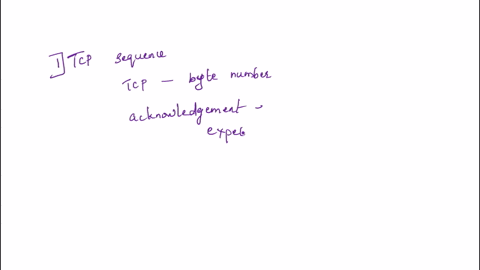 1] TCP sequence
TCP — byte number
acknowledgement -
expec